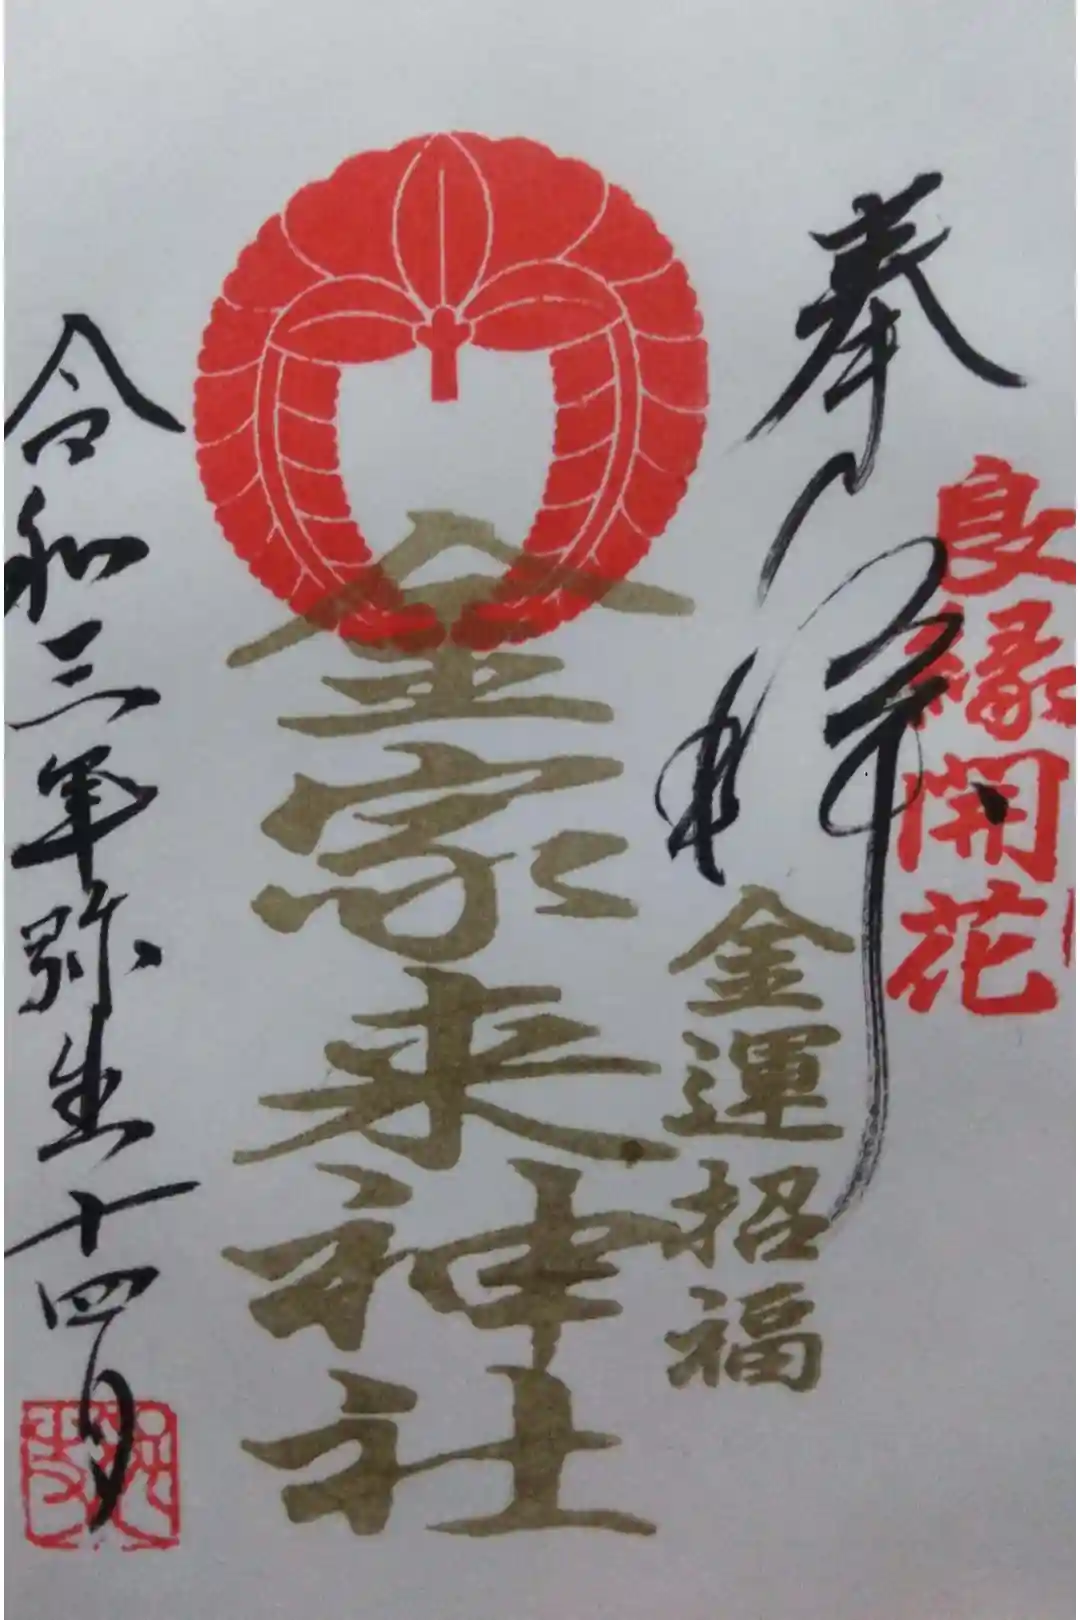 奉拝
良縁開花
金運招福
金家来神社
令和三年弥生十四日